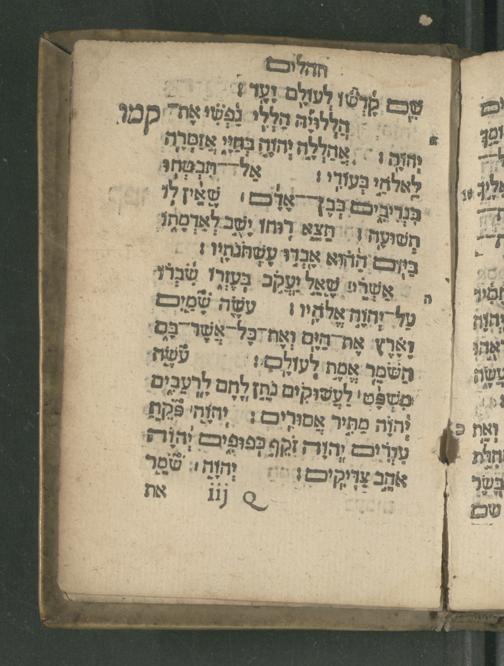 תהלים
שֵׁם קָדְשׁוֹ לְעוֹלָם וָעֶד׃
קמו הַלְלוּיָהּ הַלְלִי נַפְשִׁי אֶת־
א
יְהוָה׃ אֲהַלְלָה יְהוָה בְּחַיָּי אֲזַמְּרָה
לֵאלֹהַי בְּעוֹדִי׃ אַל־תִּבְטְחוּ
בִנְדִיבִים בְּבֶן־אָדָם׃ שֶׁאֵין לוֹ
תְשׁוּעָה׃ תֵּצֵא רוּחוֹ יָשֻׁב לְאַדְמָתוֹ
בַּיּוֹם הַהוּא אָבְדוּ עֶשְׁתֹּנֹתָיו׃
ה
אַשְׁרֵי שֶׁאֵל יַעֲקֹב בְּעֶזְרוֹ שִׂבְרוֹ
עַל־יְהוָה אֱלֹהָיו׃ עֹשֶׂה שָׁמַיִם
וָאָרֶץ אֶת־הַיָּם וְאֶת־כָּל־אֲשֶׁר־בָּם
הַשֹּׁמֵר אֱמֶת לְעוֹלָם׃ עֹשֶׂה
מִשְׁפָּט לַעֲשׁוּקִים נֹתֵן לֶחֶם לָרְעֵבִים
יְהוָה מַתִּיר אֲסוּרִים׃ יְהוָה פֹּקֵחַ
עִוְרִים יְהוָה זֹקֵף כְּפוּפִים יְהוָה
אֹהֵב צַדִּיקִים׃ יְהוָה שֹׁמֵר
Q iij את